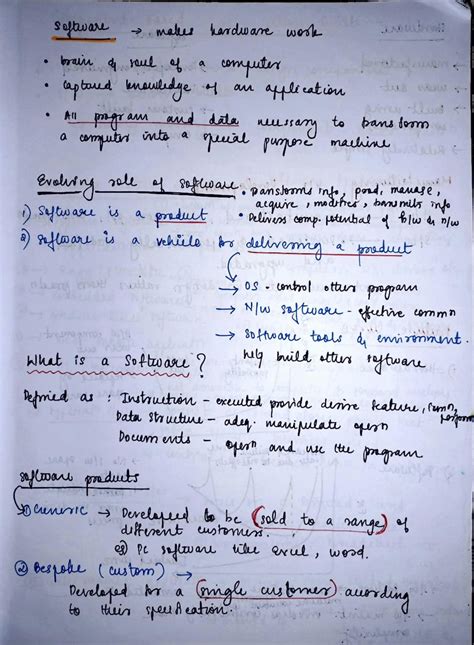 Software → makes hardware work
• brain & soul of a computer
• captured knowledge of an application
• All program and data necessary to transform
a computer into a special purpose machine
Evolving role of software
• Transforms info, prod, manage,
acquire, modifies, transmits info
1) Software is a product
• Delivers comp. potential of h/w & n/w
2) Software is a vehicle for delivering a product
→ OS - control other program
→ N/W software - effective commn
→ Software tools & environment.
help build other software
What is a Software?
Defined as : Instruction - executed provide desire feature, function,
Data Structure - adeq. manipulate opern
Documends - opern and use the program
Software products
① Generic → Developed to be (sold to a range) of
different customers.
eg) PC software like excel, word.
② Bespoke (custom) →
Developed for a (single customer) according
to their specification.